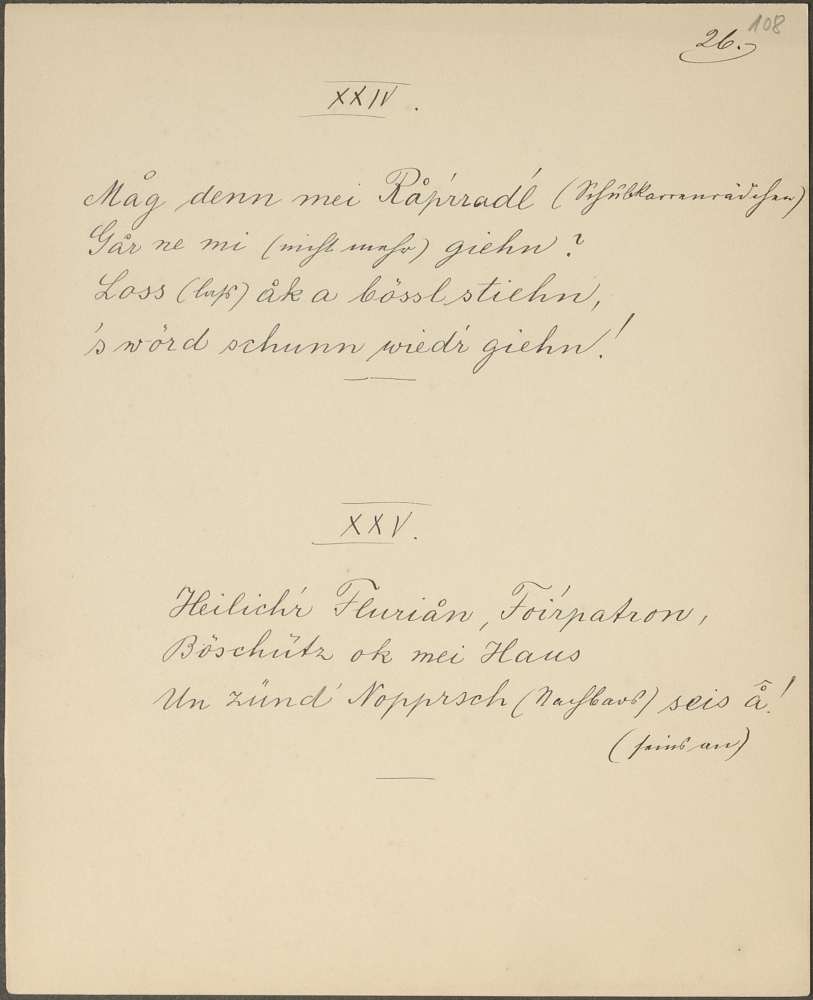 108
26.
XXIV.
Måg denn mei Råp'rradl (Schubkarrenrädchen)
Går ne mi (nicht mehr) giehn?
Loss (laß) åk a bössl stiehn,
's wörd schunn wied'r giehn!
XXV.
Heilich'r Fluriån, Foi'rpatron,
Böschütz ok mei Haus
Un zünd' Nopprsch (Nachbars) seis å̂!
(seins an)